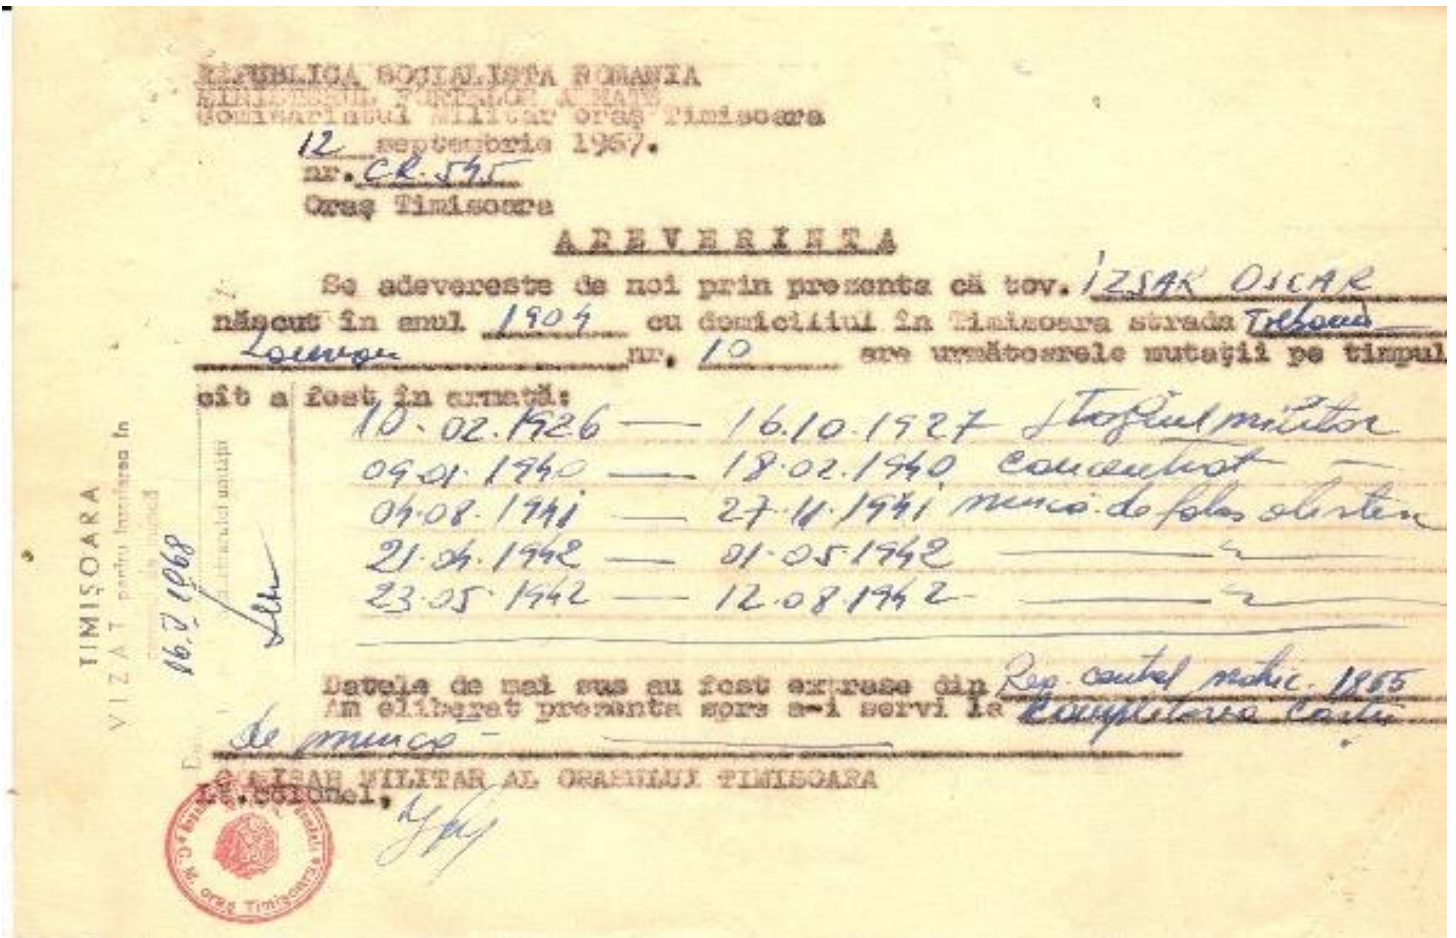 REPUBLICA SOCIALISTA ROMANIA
MINISTERUL FORTELOR ARMATE
Comisariatul Militar oraş Timisoara
12 septembrie 1967.
nr. CR. 545
Oraş Timisoara
ADEVERINTA
Se adevereste de noi prin prezenta că tov. IZSAK OSCAR
născut în anul 1904 cu domiciliul în Timisoara strada
nr. 10 are următoarele mutaţii pe timpul
cît a fost în armată:
10.02.1926 — 16.10.1927 Stagiul militar
09.01.1940 — 18.02.1940 concentrat —
04.08.1941 — 27.11.1941 munca de folos obstesc
21.04.1942 — 01.05.1942 — " —
23.05.1942 — 12.08.1942 — " —
Datele de mai sus au fost extrase din Reg. control matric. 1865
Am eliberat prezenta spre a-i servi la Completarea Cartii
de munca —
COMISAR MILITAR AL ORASULUI TIMISOARA
Lt.colonel,
C. M. oraş Timişoara
TIMIŞOARA
VIZAT pentru înscrierea în
carnetul de muncă
16.V 1968
conducătorului unităţii